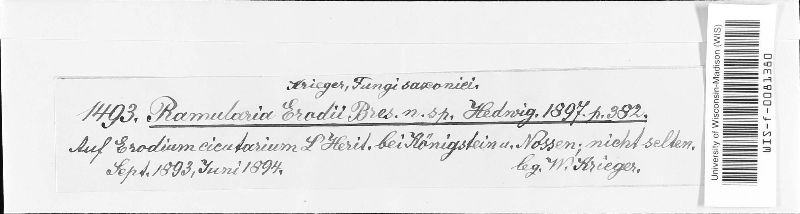 Krieger, Fungi saxonici.
1493. Ramularia Erodii Bres. n. sp. Hedwig. 1897. p. 382.
Auf Erodium cicutarium L'Herit. bei Königstein u. Nossen; nicht selten.
Sept. 1893, Juni 1894. leg. W. Krieger.
University of Wisconsin-Madison (WIS)
WIS-f-0081380